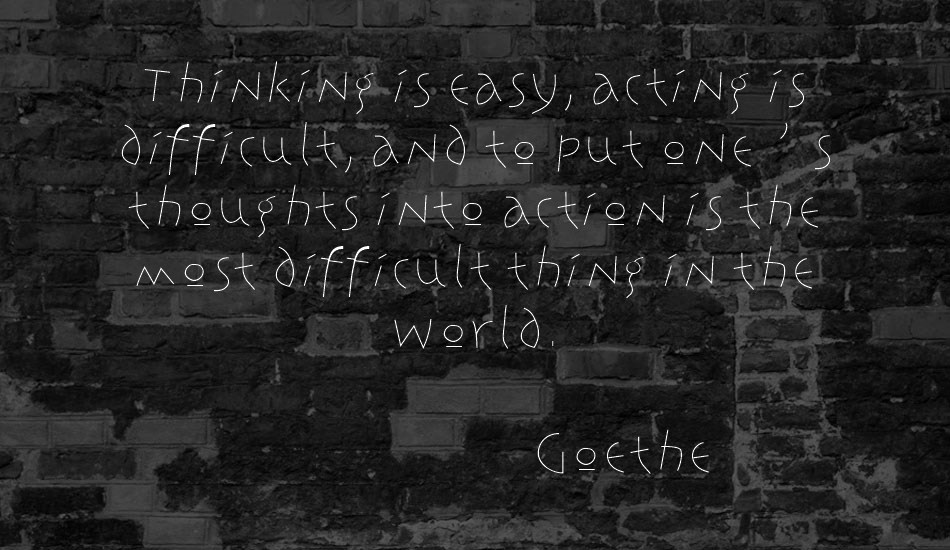 Thinking is easy, acting is
difficult, and to put one ’ s
thoughts into action is the
most difficult thing in the
world.
Goethe